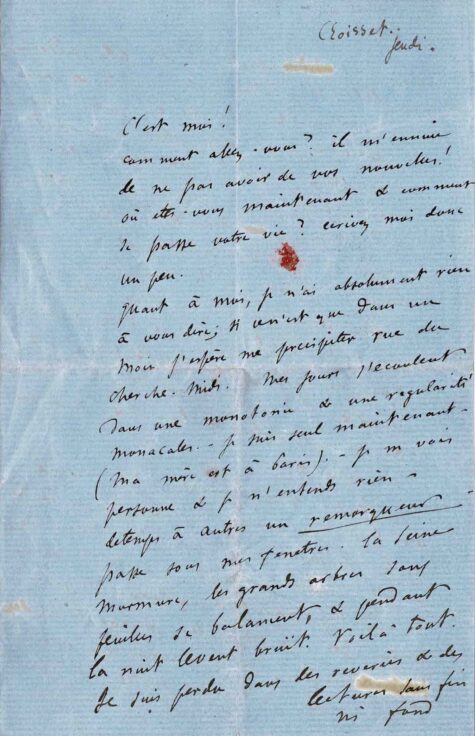 Croisset.
jeudi.
C'est moi!
comment allez-vous? il m'ennuie
de ne pas avoir de vos nouvelles!
où êtes-vous maintenant & comment
se passe votre vie? écrivez moi donc
un peu.
quant à moi, je n'ai absolument rien
à vous dire; si ce n'est que dans un
mois j'espère me précipiter rue du
cherche-midi. Mes jours s'écoulent
dans une monotonie & une régularité
monacales. - je suis seul maintenant -
(ma mère est à Paris). - je ne vois
personne & je n'entends rien -
de temps à autres un remorqueur
passe sous mes fenêtres. la Seine
murmure, les grands arbres sans
feuilles se balancent, & pendant
la nuit le vent bruit. Voilà tout.
Je suis perdu dans des rêveries & des
lectures sans fin
ni fond